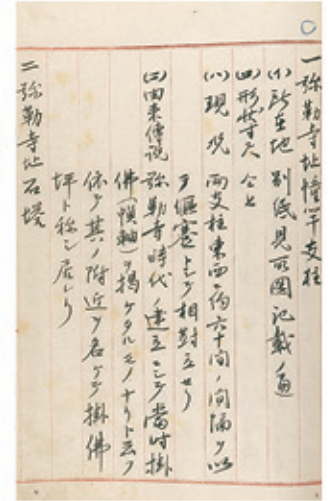 一 弥勒寺址幢竿支柱
(イ)所在地 別紙見取図記載ノ通
(ロ)形状寸尺 仝上
(ハ)現況 両支柱東西ニ約六十間ノ間隔ヲ以
テ偃蹇トシテ相対立セリ
(ニ)由来伝説 弥勒寺時代ノ建立ニシテ当時掛
佛(幀軸)ヲ掲ケタルモノナリト云フ
依テ其ノ附近ヲ名ケテ掛佛
坪ト称シ居レリ
二 弥勒寺址石塔